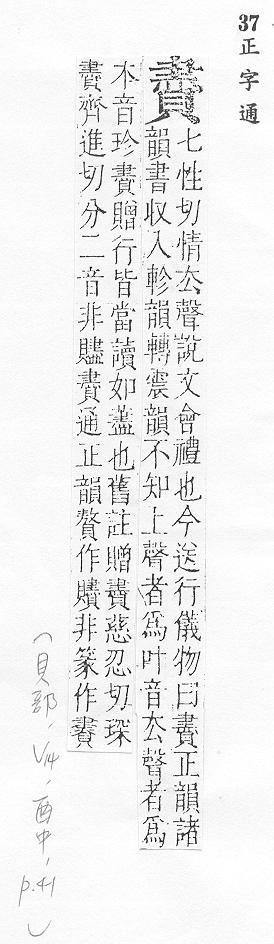 37正字通
賮
七性切情厺聲說文會禮也今送行儀物曰賮正韻諸
韻書收入軫韻轉震韻不知上聲者爲叶音厺聲者爲
本音珍賮贈行皆當讀如盡也舊註贈賮慈忍切琛
賮齊進切分二音非贐賮通正韻贅作非篆作賮
（貝部，V14，酉中，p.41）